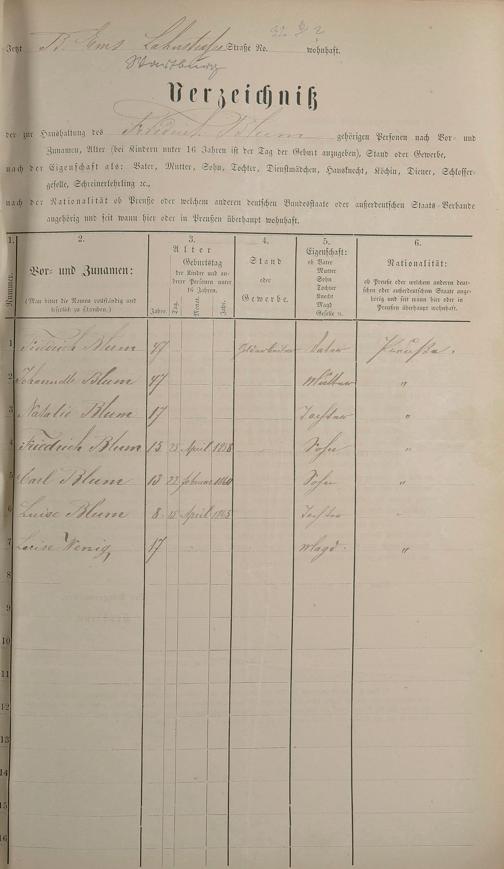 Jetzt B. Ems Lahnstraße Straße No. wohnhaft.
Verzeichniß
der zur Haushaltung des Friedrich Blum gehörigen Personen nach Vor- und
Zunamen, Alter (bei Kindern unter 16 Jahren ist der Tag der Geburt anzugeben), Stand oder Gewerbe,
nach der Eigenschaft als: Vater, Mutter, Sohn, Tochter, Dienstmädchen, Hausknecht, Köchin, Diener, Schlosser-
geselle, Schreinerlehrling ꝛc.,
nach der Nationalität ob Preuße oder welchem anderen deutschen Bundesstaate oder außerdeutschen Staats-Verbande
angehörig und seit wann hier oder in Preußen überhaupt wohnhaft.
1. 2. 3. 4. 5. 6.
Nummer.
Vor- und Zunamen:
(Man bittet die Namen vollständig und
leserlich zu schreiben.)
Alter
Geburtstag
der Kinder und an-
derer Personen unter
16 Jahren.
Jahre. Tag. Monat. Jahr.
Stand
oder
Gewerbe.
Eigenschaft:
ob Vater
Mutter
Sohn
Tochter
Knecht
Magd
Geselle ꝛc.
Nationalität:
ob Preuße oder welchem anderen deut-
schen oder außerdeutschen Staate ange-
hörig und seit wann hier oder in
Preußen überhaupt wohnhaft.
1 Friedrich Blum 47 Vater Preuße.
2 Johannette Blum 47 Mutter "
3 Natalie Blum 17 Tochter "
4 Friedrich Blum 15 25 April 1858 Sohn "
5 Carl Blum 13 22 Februar 1860 Sohn "
6 Luise Blum 8 April 1865 Tochter
7 Luise Wenig 17 Magd. "
8
9
10
11
12
13
14
15
16